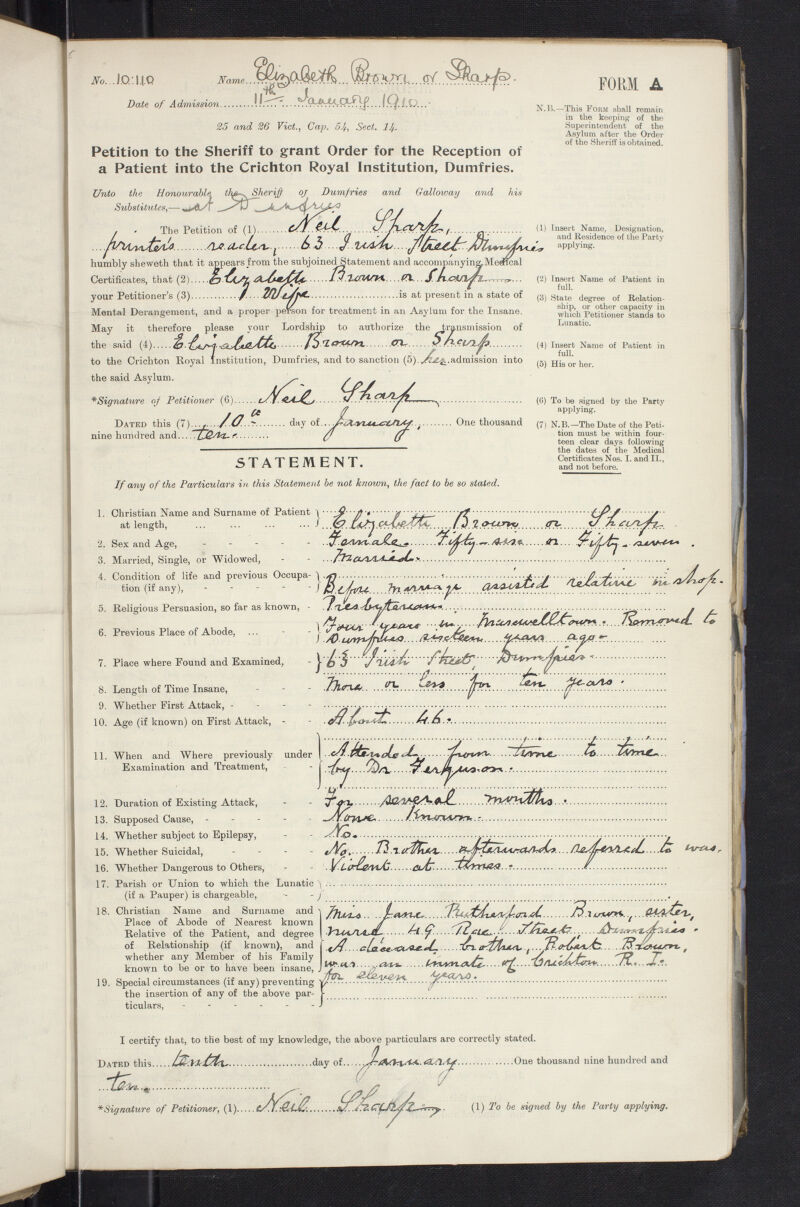 No. 10110 Name Elizabeth Brown or Sharp.
FORM A
Date of Admission 11th January 1910
25 and 26 Vict., Cap. 54, Sect. 14.
N.B.—This Form shall remain
in the keeping of the
Superintendent of the
Asylum after the Order
of the Sheriff is obtained.
Petition to the Sheriff to grant Order for the Reception of
a Patient into the Crichton Royal Institution, Dumfries.
Unto the Honourable the Sheriff of Dumfries and Galloway and his
Substitutes,— at Dumfries
The Petition of (1) Neil Sharp,
printer's reader, 63 Irish Street Dumfries
(1) Insert Name, Designation,
and Residence of the Party
applying.
humbly sheweth that it appears from the subjoined Statement and accompanying Medical
Certificates, that (2) Elizabeth Brown or Sharp
your Petitioner's (3) Wife is at present in a state of
Mental Derangement, and a proper person for treatment in an Asylum for the Insane.
(2) Insert Name of Patient in
full.
(3) State degree of Relation-
ship, or other capacity in
which Petitioner stands to
Lunatic.
May it therefore please your Lordship to authorize the transmission of
the said (4) Elizabeth Brown or Sharp
to the Crichton Royal Institution, Dumfries, and to sanction (5) her admission into
the said Asylum.
(4) Insert Name of Patient in
full.
(5) His or her.
*Signature of Petitioner (6) Neil Sharp
(6) To be signed by the Party
applying.
Dated this (7) 10th day of January, One thousand
nine hundred and ten.
(7) N.B.—The Date of the Peti-
tion must be within four-
teen clear days following
the dates of the Medical
Certificates Nos. I. and II.,
and not before.
STATEMENT.
If any of the Particulars in this Statement be not known, the fact to be so stated.
1. Christian Name and Surname of Patient
at length, ... ... ... ... Elizabeth Brown or Sharp
2. Sex and Age, - - - - - Female. Fifty-six or Fifty-seven.
3. Married, Single, or Widowed, - Married.
4. Condition of life and previous Occupa-
tion (if any), - - - - Before marriage assisted relative in shop.
5. Religious Persuasion, so far as known, - Presbyterian.
6. Previous Place of Abode, ... - - Four years in Maxwelltown. Removed to
Dumfries sixteen years ago.
7. Place where Found and Examined, - 63 Irish Street, Dumfries.
8. Length of Time Insane, - - - More or less for ten years.
9. Whether First Attack, - - - -
10. Age (if known) on First Attack, - - About 46.
11. When and Where previously under
Examination and Treatment, - - Attended from time to time
by Dr Ferguson.
12. Duration of Existing Attack, - - For several months.
13. Supposed Cause, - - - - - None Known.
14. Whether subject to Epilepsy, - - No.
15. Whether Suicidal, - - - - No. Brother afterwards referred to was.
16. Whether Dangerous to Others, - - Violent at times.
17. Parish or Union to which the Lunatic
(if a Pauper) is chargeable, - -
18. Christian Name and Surname and
Place of Abode of Nearest known
Relative of the Patient, and degree
of Relationship (if known), and
whether any Member of his Family
known to be or to have been insane,
Miss Jane Rutherford Brown, sister,
nurse 49 Rae Street, Dumfries.
A deceased brother, Robert Brown,
was an inmate of Crichton R. I.
for eleven years.
19. Special circumstances (if any) preventing
the insertion of any of the above par-
ticulars, - - - - - -
I certify that, to the best of my knowledge, the above particulars are correctly stated.
Dated this tenth day of January One thousand nine hundred and
ten.
*Signature of Petitioner, (1) Neil Sharp (1) To be signed by the Party applying.